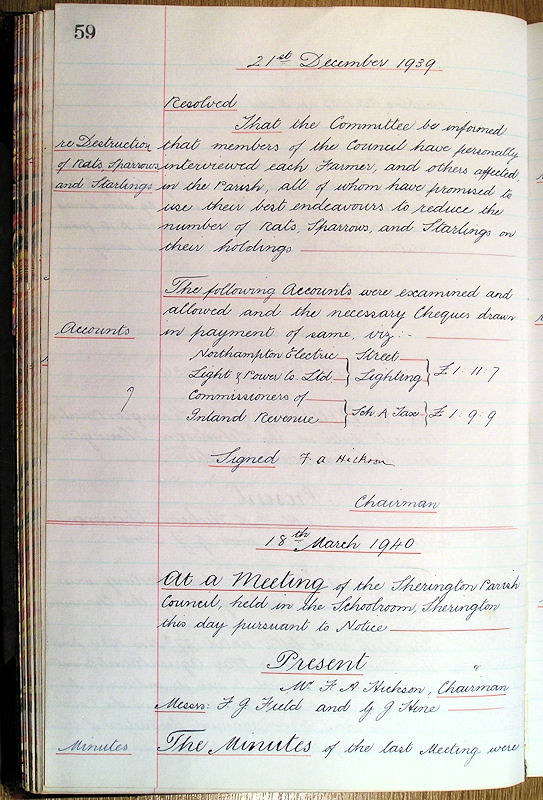 59
21st December 1939
Resolved
That the Committee be informed
re Destruction that members of the Council have personally
of Rats, Sparrows interviewed each Farmer, and others affected
and Starlings in the Parish, all of whom have promised to
use their best endeavours to reduce the
number of Rats, Sparrows, and Starlings on
their holdings
The following Accounts were examined and
allowed and the necessary Cheques drawn
Accounts in payment of same, viz:-
Northampton Electric } Street
Light & Power Co. Ltd } Lighting } £1: 11: 7
Commissioners of
? Inland Revenue } Sch. A. Tax } £1: 9: 9
Signed F A Hickson
Chairman
18th March 1940
At a Meeting of the Sherington Parish
Council, held in the Schoolroom, Sherington
this day pursuant to Notice
Present
Mr F. A Hickson, Chairman
Messrs: F G Field and G J Hine
Minutes The Minutes of the last Meeting were